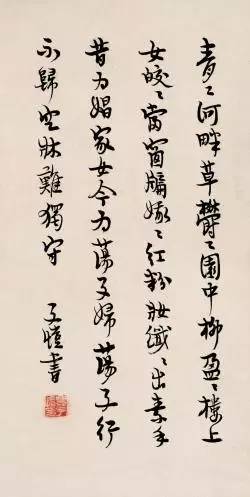 青々河畔草鬱々園中柳盈々樓上
女皎々當窗牖娥々紅粉妝纖々出素手
昔為娼家女今為蕩子婦蕩子行
不歸空牀難獨守 子愷書